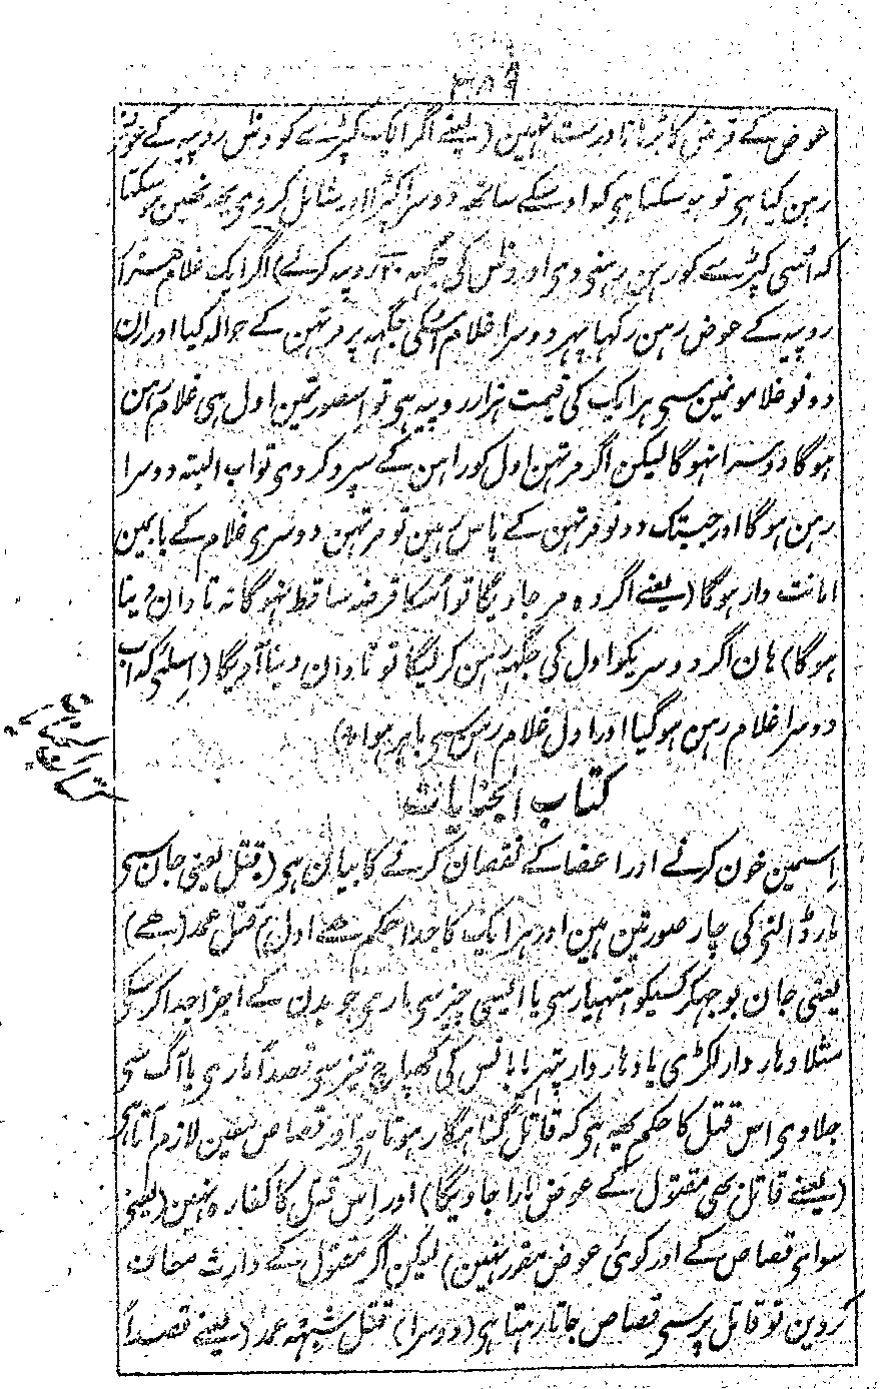 ۳۸۹
عوض کے قرض کا بڑہانا درست نہین (یعنے اگر ایک کپڑے کو دنل روپیہ کے عوض
رہن کیا ہی تو یہ ہو سکتا ہی کہ اوسکے ساتھہ دوسرا کپڑا لا اور شامل کر دی یہہ نہین ہو سکتا
کہ اُسی کپڑے کو رہن رہنی دی اور دنل کی جگہہ ۲۰ روپیہ کرلے) اگر ایک غلام ہزار
روپیہ کے عوض رہن رکہا پہر دوسرا غلام اُسکی جگہہ پر مرتہن کے حوالہ کیا اور ان
دونو غلامونمین سی ہر ایک کی قیمت ہزار روپیہ ہی تو اِسصورتمین اول ہی غلام رہن
ہوگا دوسرا نہوگا لیکن اگر مرتہن اول کو راہن کے سپرد کردی تو اب البتہ دوسرا
رہن ہوگا اور جبتک دونو مرتہن کے پاس رہین تو مرتہن دوسری غلام کے بابمین
امانت دار ہوگا (یعنے اگر وہ مر جاویگا تو اُسکا قرضہ ساقط نہوگا نہ تاوان دینا
ہوگا) ہان اگر دوسریکو اول کی جگہہ رہن کرلیگا تو تاوان دینا آویگا (اِسلئی کہ اب
دوسرا غلام رہن ہوگیا اور اول غلام رہن سی باہر ہوا)
کتاب الجنایات
کتاب الجنایات
اِسمین خون کرنے اور اعضا کے نقصان کرنے کا بیان ہی (قتل یعنی جان سی
مار ڈالنی کی چار صورتین ہین اور ہر ایک کا جدا حکم ہے اول) قتل عمد (ہے)
یعنی جان بوجہکر کسیکو ہتہیار سی یا ایسی چیز سی ماری جو بدن کے اجزا جدا کر سکی
مثلا دہار دار لکڑی یا دہار دار پتہر یا بانس کی کھپارچ تیز سی قصداً ماری یا آگ سی
جلاوی اس قتل کا حکم یہہ ہی کہ قاتل گناہگار ہوتا ہی اور قصاص معین لازم آتا ہی
(یعنے قاتل بھی مقتول کے عوض مارا جاویگا) اور اِس قتل کا کفارہ نہین (یعنی
سوای قصاص کے اور کوئی عوض مقرر نہین) لیکن اگر مقتول کے وارث معاف
کردین تو قاتل پر سی قصاص جاتا رہتا ہی (دوسرا) قتل شبہہ عمد (یعنے قصداً